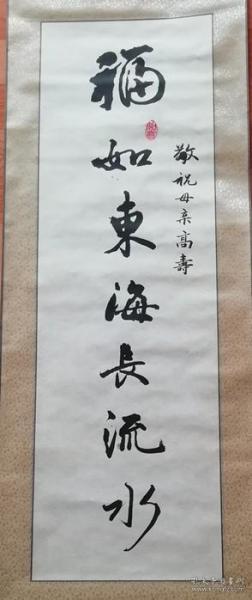 敬祝母亲高壽
福如東海長流水